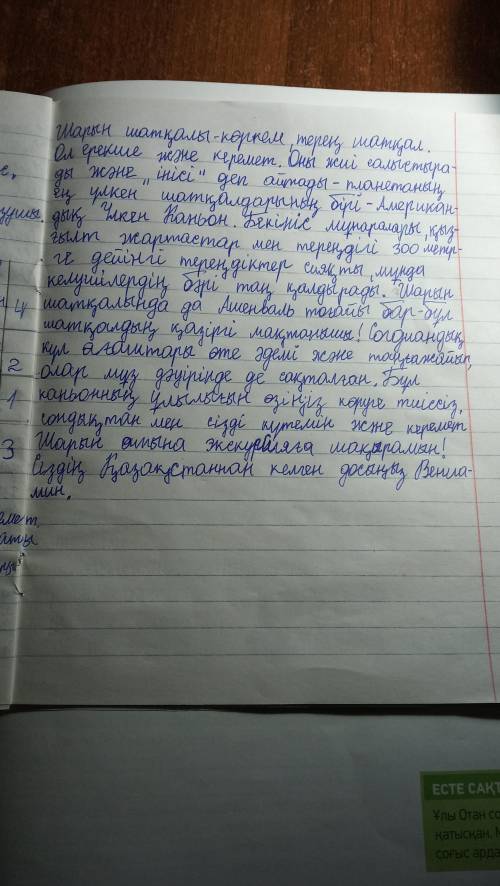 Шарын шатқалы-көркем, терең шатқал.
Ол ерекше және керемет. Оны жиі салыстыра-
ды және "інісі" деп айтады-планетаның
ең үлкен шатқалдарының бірі-Американ-
дық Үлкен Каньон. Бекініс мұнаралары, қыз-
ғылт жартастар мен тереңдігі 300 метр-
ге дейінгі тереңдіктер сияқты, мұнда
келушілердің бәрі таң қалдырады. Шарын
шатқалында да Ашенваль тоғайы бар-бұл
шатқалдың қазіргі мақтанышы! Согдиандық
күл ағаштары өте әдемі және таңғажайып,
олар мұз дәуірінде де сақталған. Бұл
каньонның ұлылығын өзіңіз көруге тиіссіз,
сондықтан мен сізді күтемін және керемет
Шарын атына экскурсияға шақырамын!
Сіздің Қазақстаннан келген досыңыз Вениа-
мин.
4
2
1
3
ЕСТЕ САҚТ
Ұлы Отан со
қатысқан, М
соғыс арда